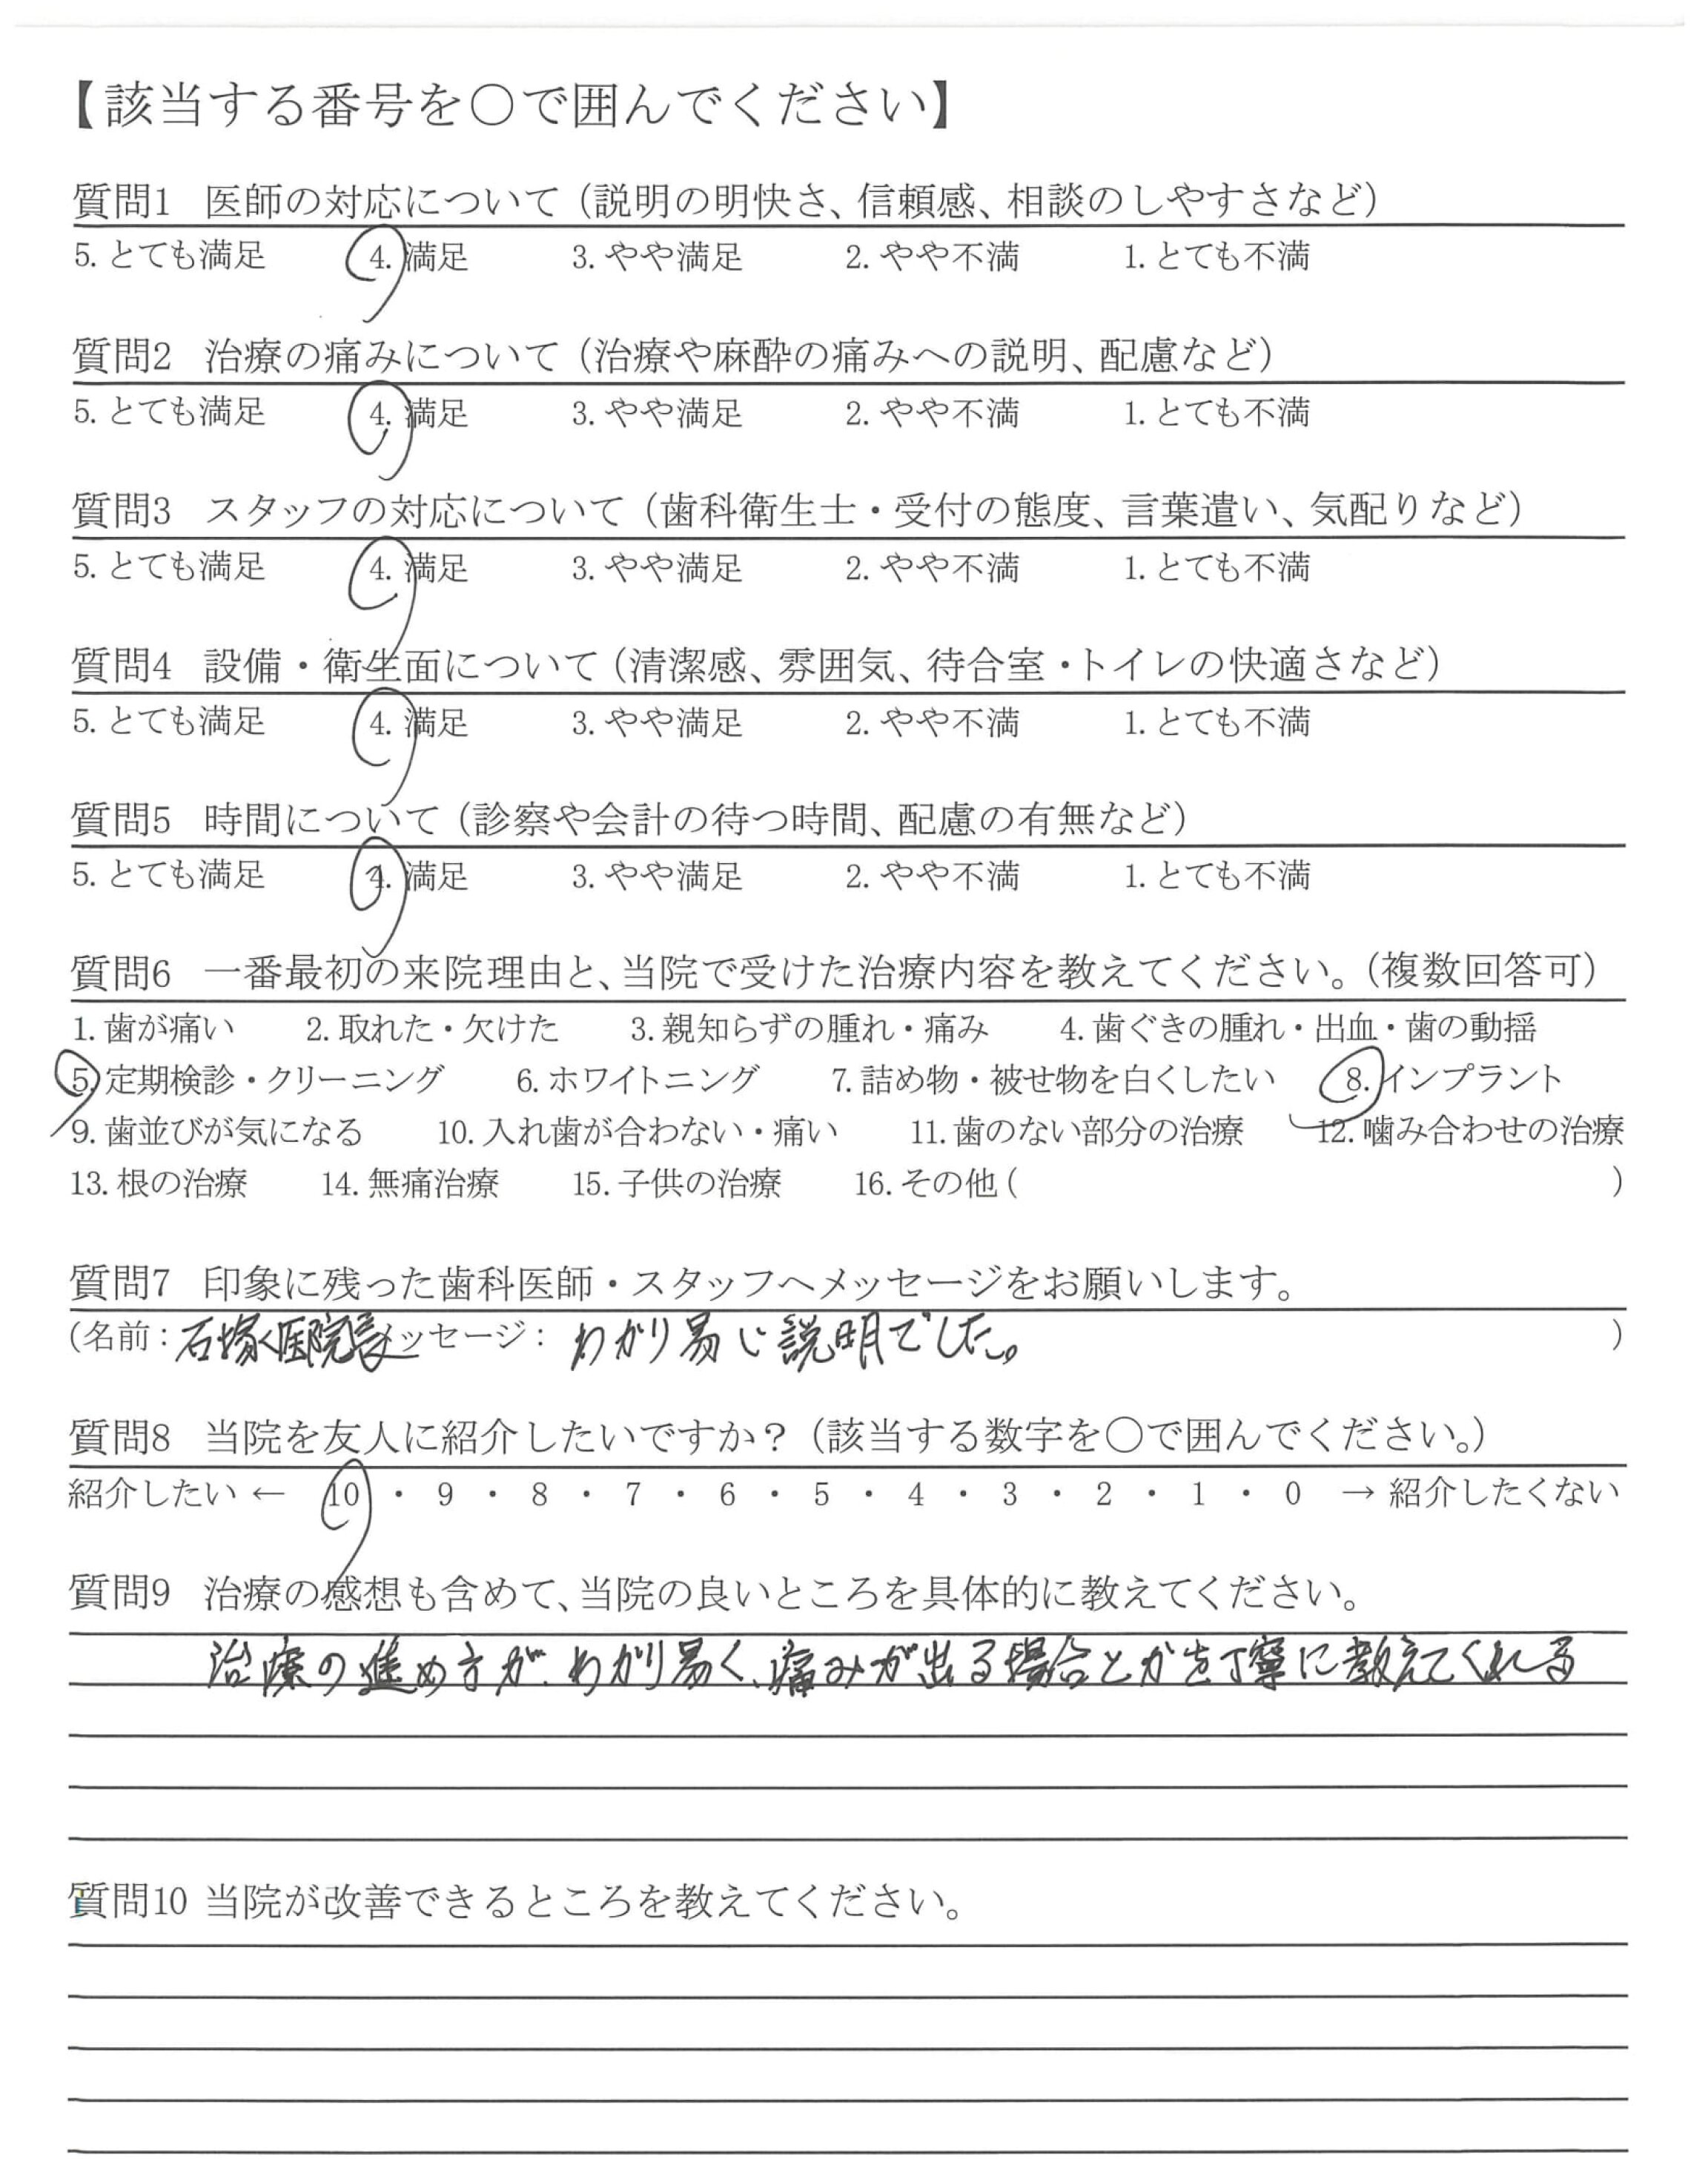 【該当する番号を○で囲んでください】
質問1 医師の対応について（説明の明快さ、信頼感、相談のしやすさなど）
5. とても満足 4. 満足 3. やや満足 2. やや不満 1. とても不満
質問2 治療の痛みについて（治療や麻酔の痛みへの説明、配慮など）
5. とても満足 4. 満足 3. やや満足 2. やや不満 1. とても不満
質問3 スタッフの対応について（歯科衛生士・受付の態度、言葉遣い、気配りなど）
5. とても満足 4. 満足 3. やや満足 2. やや不満 1. とても不満
質問4 設備・衛生面について（清潔感、雰囲気、待合室・トイレの快適さなど）
5. とても満足 4. 満足 3. やや満足 2. やや不満 1. とても不満
質問5 時間について（診察や会計の待つ時間、配慮の有無など）
5. とても満足 4. 満足 3. やや満足 2. やや不満 1. とても不満
質問6 一番最初の来院理由と、当院で受けた治療内容を教えてください。（複数回答可）
1. 歯が痛い 2. 取れた・欠けた 3. 親知らずの腫れ・痛み 4. 歯ぐきの腫れ・出血・歯の動揺
5. 定期検診・クリーニング 6. ホワイトニング 7. 詰め物・被せ物を白くしたい 8. インプラント
9. 歯並びが気になる 10. 入れ歯が合わない・痛い 11. 歯のない部分の治療 12. 噛み合わせの治療
13. 根の治療 14. 無痛治療 15. 子供の治療 16. その他 ( )
質問7 印象に残った歯科医師・スタッフへメッセージをお願いします。
(名前：石塚医院長 メッセージ： わかり易い説明でした。 )
質問8 当院を友人に紹介したいですか？（該当する数字を○で囲んでください。）
紹介したい ← 10 ・ 9 ・ 8 ・ 7 ・ 6 ・ 5 ・ 4 ・ 3 ・ 2 ・ 1 ・ 0 → 紹介したくない
質問9 治療の感想も含めて、当院の良いところを具体的に教えてください。
治療の進め方が、わかり易く、痛みが出る場合とかを丁寧に教えてくれる
質問10 当院が改善できるところを教えてください。